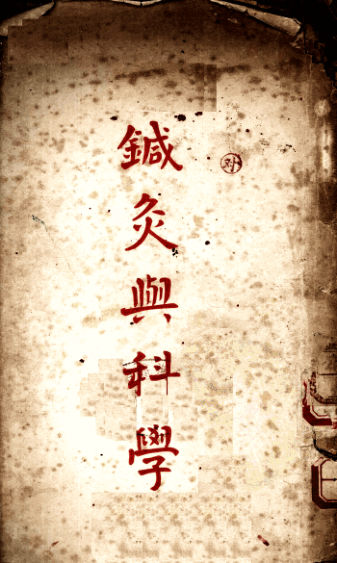 鍼灸與科學